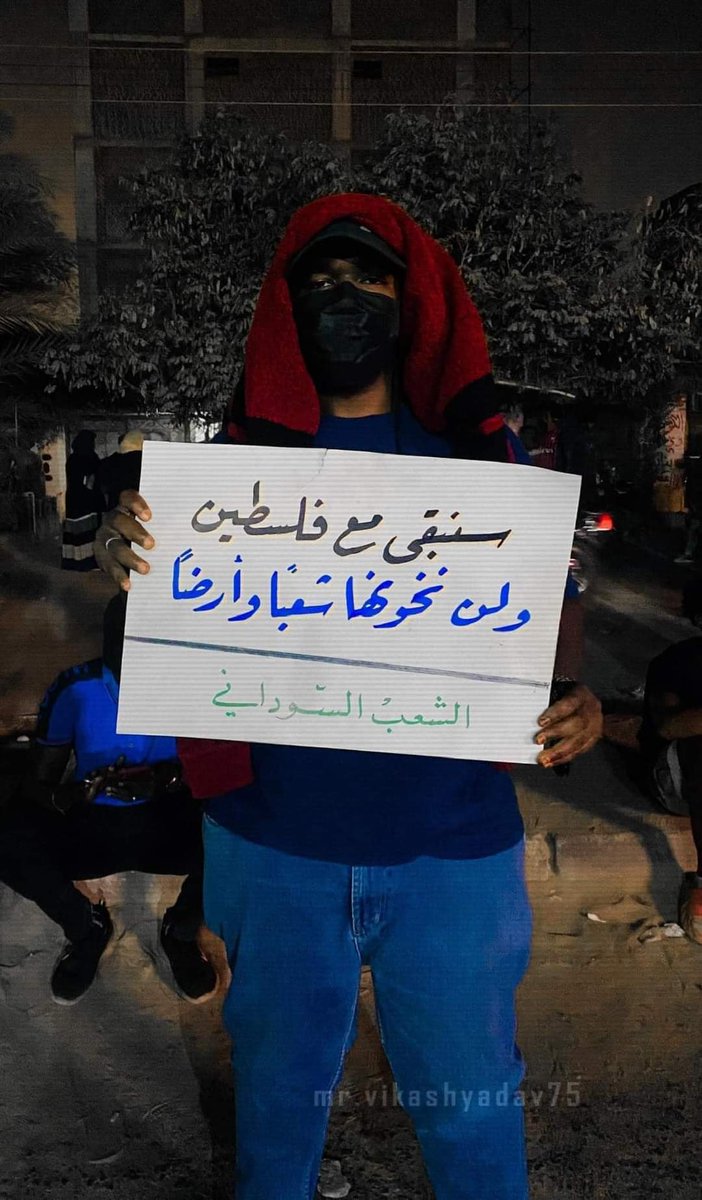 سنبقى مع فلسطين
ولن نخونها شعبًا وأرضاً
الشعبْ السّوداني
mr vikashyadav75